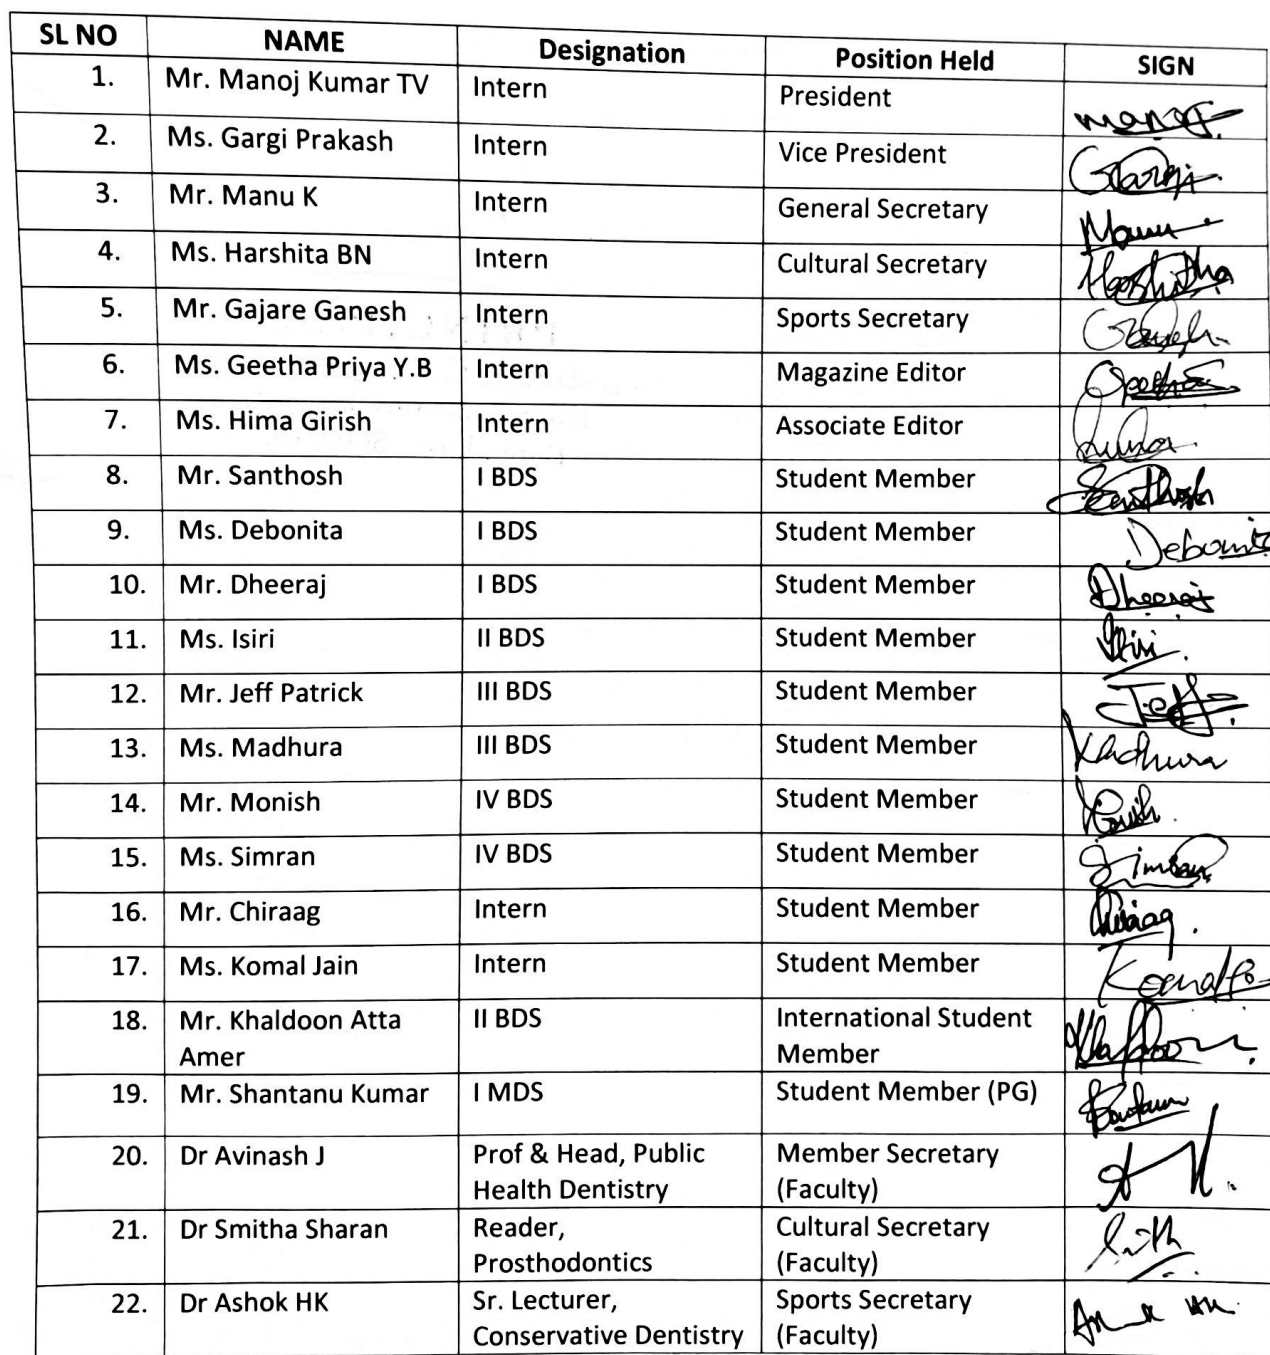 SL NO NAME Designation Position Held SIGN
1. Mr. Manoj Kumar TV Intern President Manoj
2. Ms. Gargi Prakash Intern Vice President Gargi
3. Mr. Manu K Intern General Secretary Manu
4. Ms. Harshita BN Intern Cultural Secretary Harshitha
5. Mr. Gajare Ganesh Intern Sports Secretary
6. Ms. Geetha Priya Y.B Intern Magazine Editor
7. Ms. Hima Girish Intern Associate Editor
8. Mr. Santhosh I BDS Student Member Santhosh
9. Ms. Debonita I BDS Student Member Debonita
10. Mr. Dheeraj I BDS Student Member Dheeraj
11. Ms. Isiri II BDS Student Member Isiri
12. Mr. Jeff Patrick III BDS Student Member Jeff
13. Ms. Madhura III BDS Student Member Madhura
14. Mr. Monish IV BDS Student Member
15. Ms. Simran IV BDS Student Member Simran
16. Mr. Chiraag Intern Student Member Chiraag
17. Ms. Komal Jain Intern Student Member
18. Mr. Khaldoon Atta II BDS International Student
Amer Member
19. Mr. Shantanu Kumar I MDS Student Member (PG)
20. Dr Avinash J Prof & Head, Public Member Secretary
Health Dentistry (Faculty)
21. Dr Smitha Sharan Reader, Cultural Secretary
Prosthodontics (Faculty)
22. Dr Ashok HK Sr. Lecturer, Sports Secretary
Conservative Dentistry (Faculty)